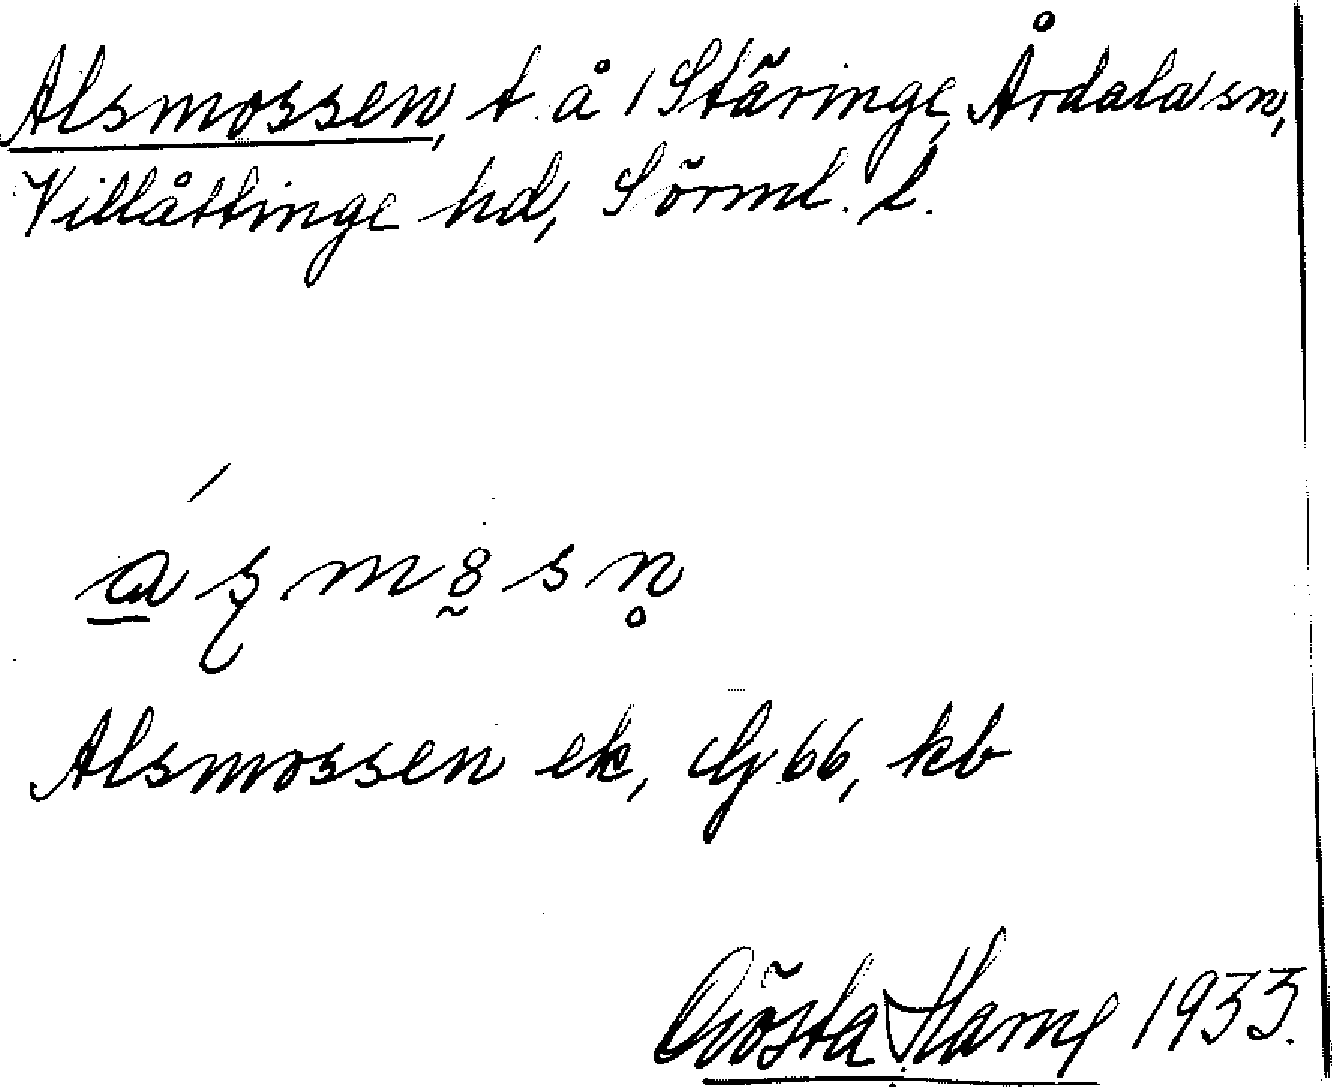 Alsmossen, t. å / Stäringe, Årdala sn,
Villåttinge hd, Sörml. l.
Alsmossen ek, 66, kb
Gösta Harne 1933.